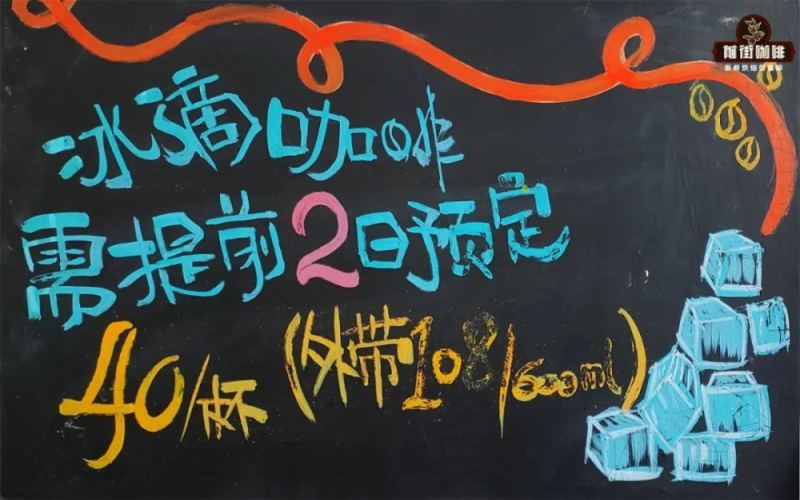 前街咖啡
冰滴咖啡
需提前2日预定
40/杯(外带108/600ml)